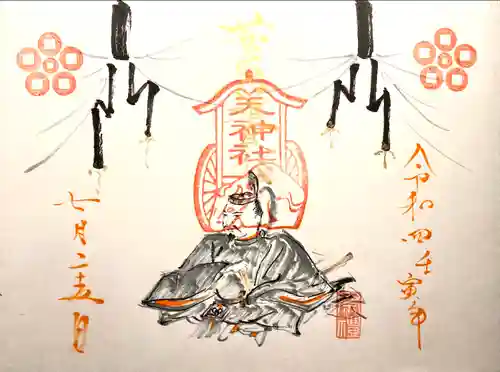 令和四壬寅年
天神社
七月二十五日